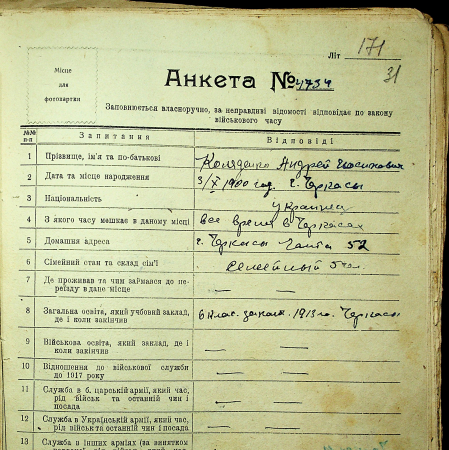 Літ 171
31
Місце
для
фотокартки
Анкета № 4734
Заповнюється власноручно, за неправдиві відомості відповідає по закону
військового часу
№№
п-п
Запитання
Відповіді
1 Прізвище, ім'я та по-батькові Коляденко Андрей
2 Дата та місце народження 3/X 1900 год. г. Черкасы
3 Національність украинец
4 З якого часу мешкає в даному місці все время в Черкасах
5 Домашня адреса г. Черкасы 52
6 Сімейний стан та склад сім'ї семейный
7 Де проживав та чим займався до пе-
реїзду в дане місце — —
8 Загальна освіта, який учбовий заклад,
де і коли закінчив 6 клас. 1913 г. Черкасы
9 Військова освіта, який заклад, де і
коли закінчив — —
10 Відношення до військової служби
до 1917 року — —
11 Служба в б. царській армії, який час,
рід військ та останній чин і
посада — —
12 Служба в Українській армії, який час,
рід військ та останній чин і посада — —
13 Служба в інших арміях (за винятком